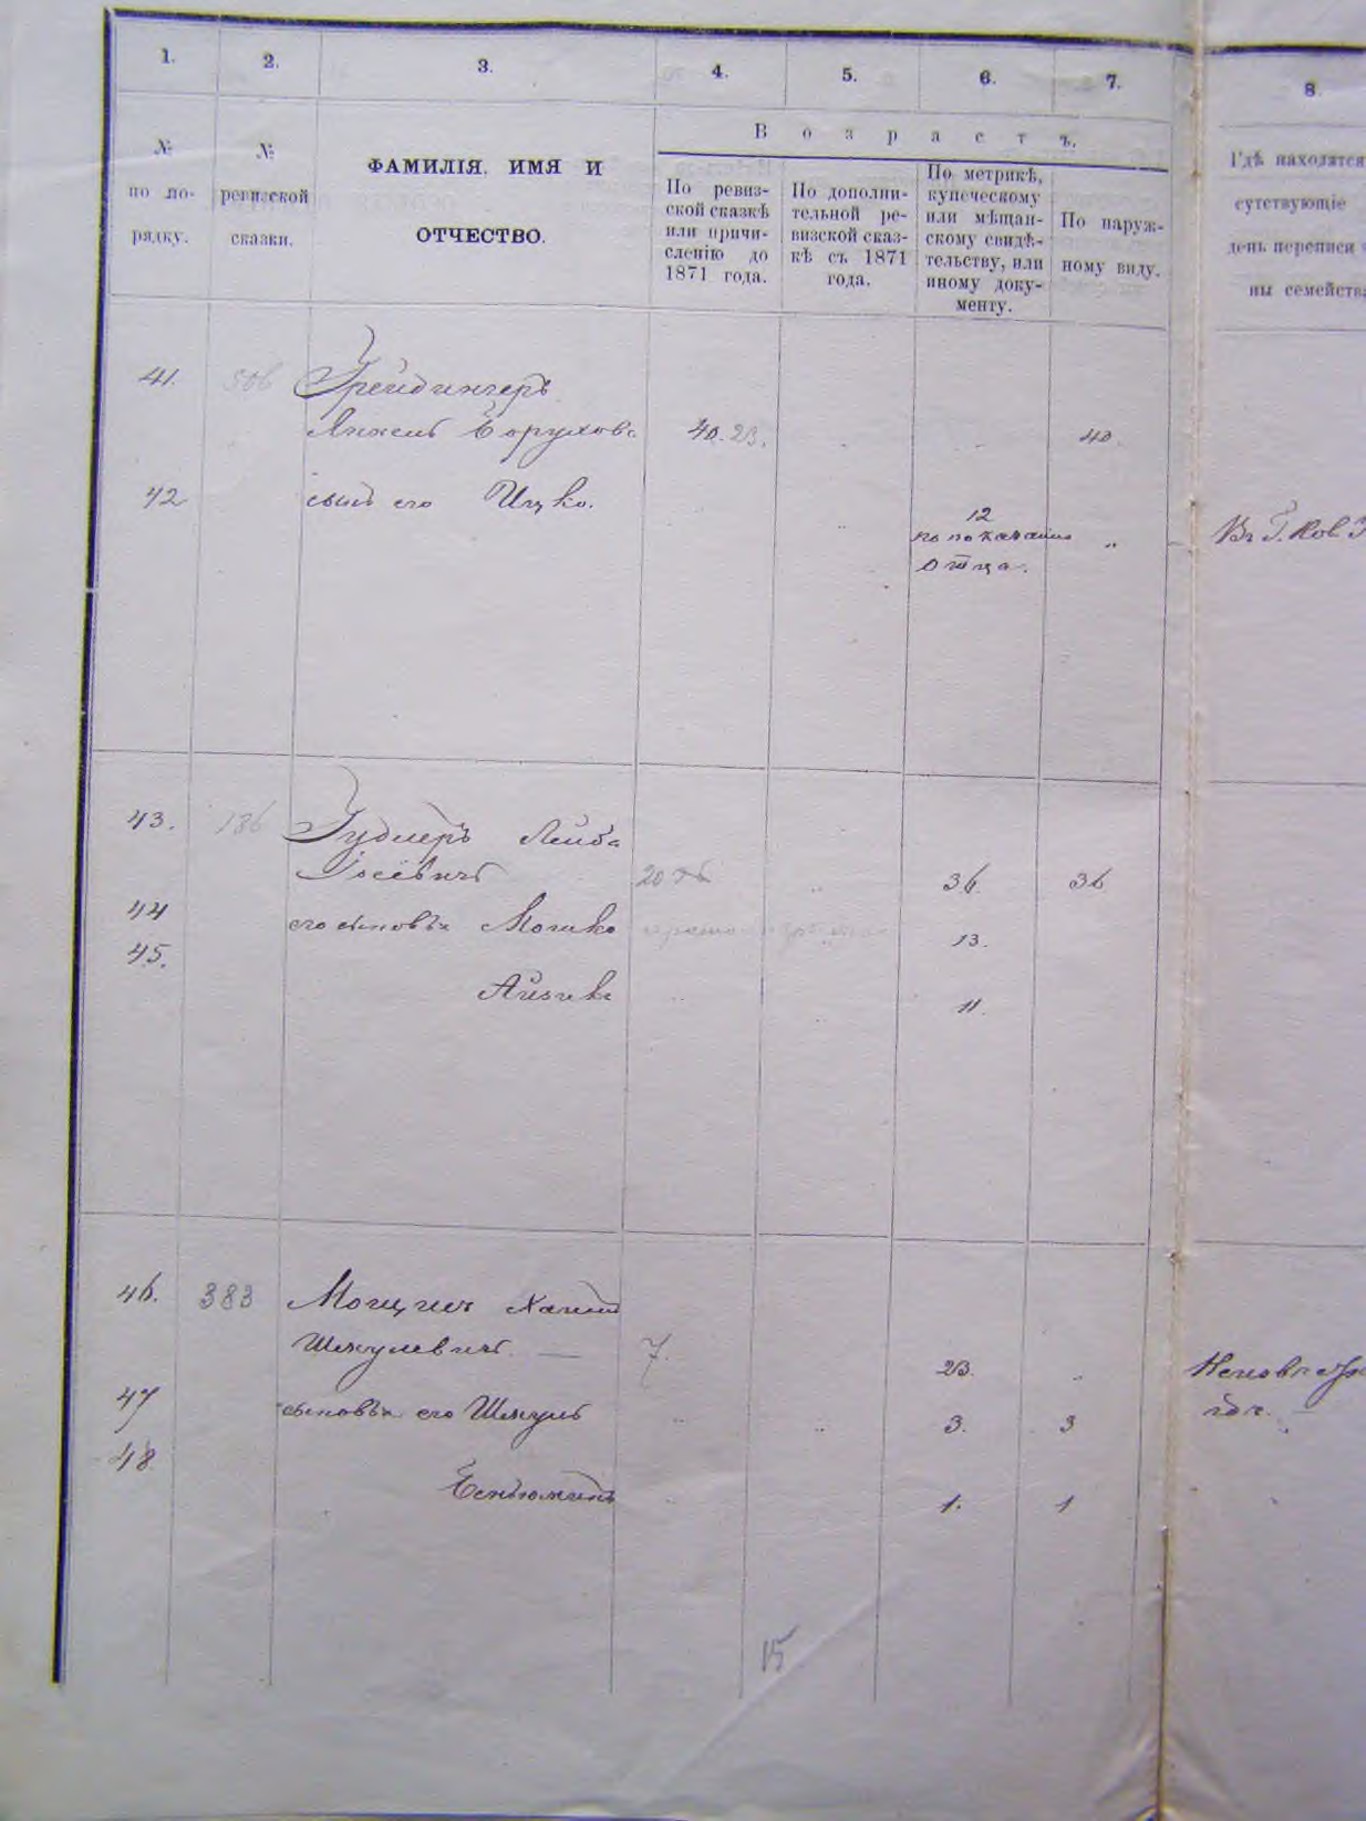 1.
2.
3.
4.
5.
6.
7.
8
№
по по-
рядку.
№
ревизской
сказки.
ФАМИЛІЯ, ИМЯ И
ОТЧЕСТВО.
Возрастъ.
По ревиз-
ской сказкѣ
или причи-
сленію до
1871 года.
По дополни-
тельной ре-
визской сказ-
кѣ съ 1871
года.
По метрикѣ,
купеческому
или мѣщан-
скому свидѣ-
тельству, или
иному доку-
менту.
По наруж-
ному виду.
Гдѣ находятся
сутствующіе
день переписи
ны семейства
41. 506 Грейдингеръ
Янкель Борухов. 40. 23. 40.
42 сынъ его Ицко.
12
по показанію
отца.
Въ Г. Ков
43. 136 Гудлеръ Лейба
Іосевичъ 20 36 36
44 его сыновья Мошко 13.
45. Айзикъ 11.
46. 383 Мощин Хаим
Шмулевичъ. — 7. 23.
47 сыновья его Шмуль 3. 3
48 Беньюминъ 1. 1
15